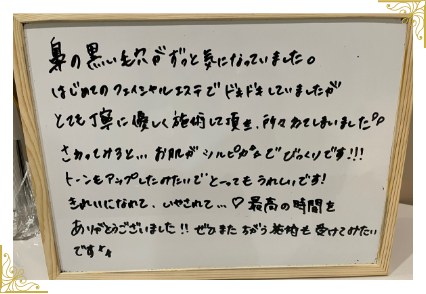 鼻の黒い毛穴がずっと気になっていました。
はじめてのフェイシャルエステでドキドキしていましたが
とても丁寧に優しく施術して頂き、所々力てしまいました
さわってみると… お肌がツルピカでびっくりです!!!
トーンもアップしたみたいでとってもうれしいです!
きれいになれて、いやされて…♡最高の時間を
ありがとうございました!! ぜひまた ちがう施術も 受けてみたい
です